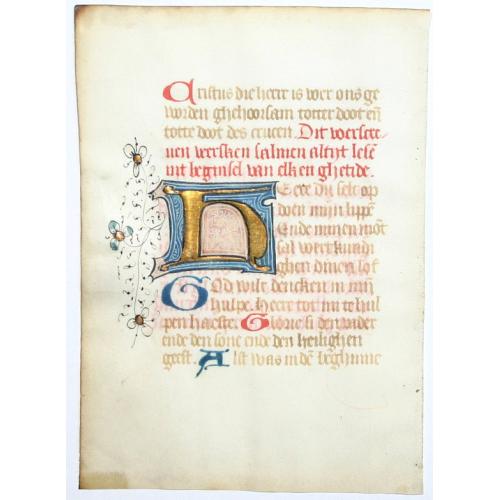 Cristus die heere is voer ons ge
worden ghehoorsam totter doot eñ
totte doot des crucen. Dit voerscre
uen versken salmen altijt lesẽ
int beginsel van elken ghetide.
Heere du selt op
doen mijn lippẽ
Ende minen mõt
sal vercundi
ghen dinen lof
God wilt dencken in mijn
hulpe. heere tot mi te hul
pen haeste. Glorie si den vader
ende den sone ende den heilighen
geest. Alst was in dẽ beghinne